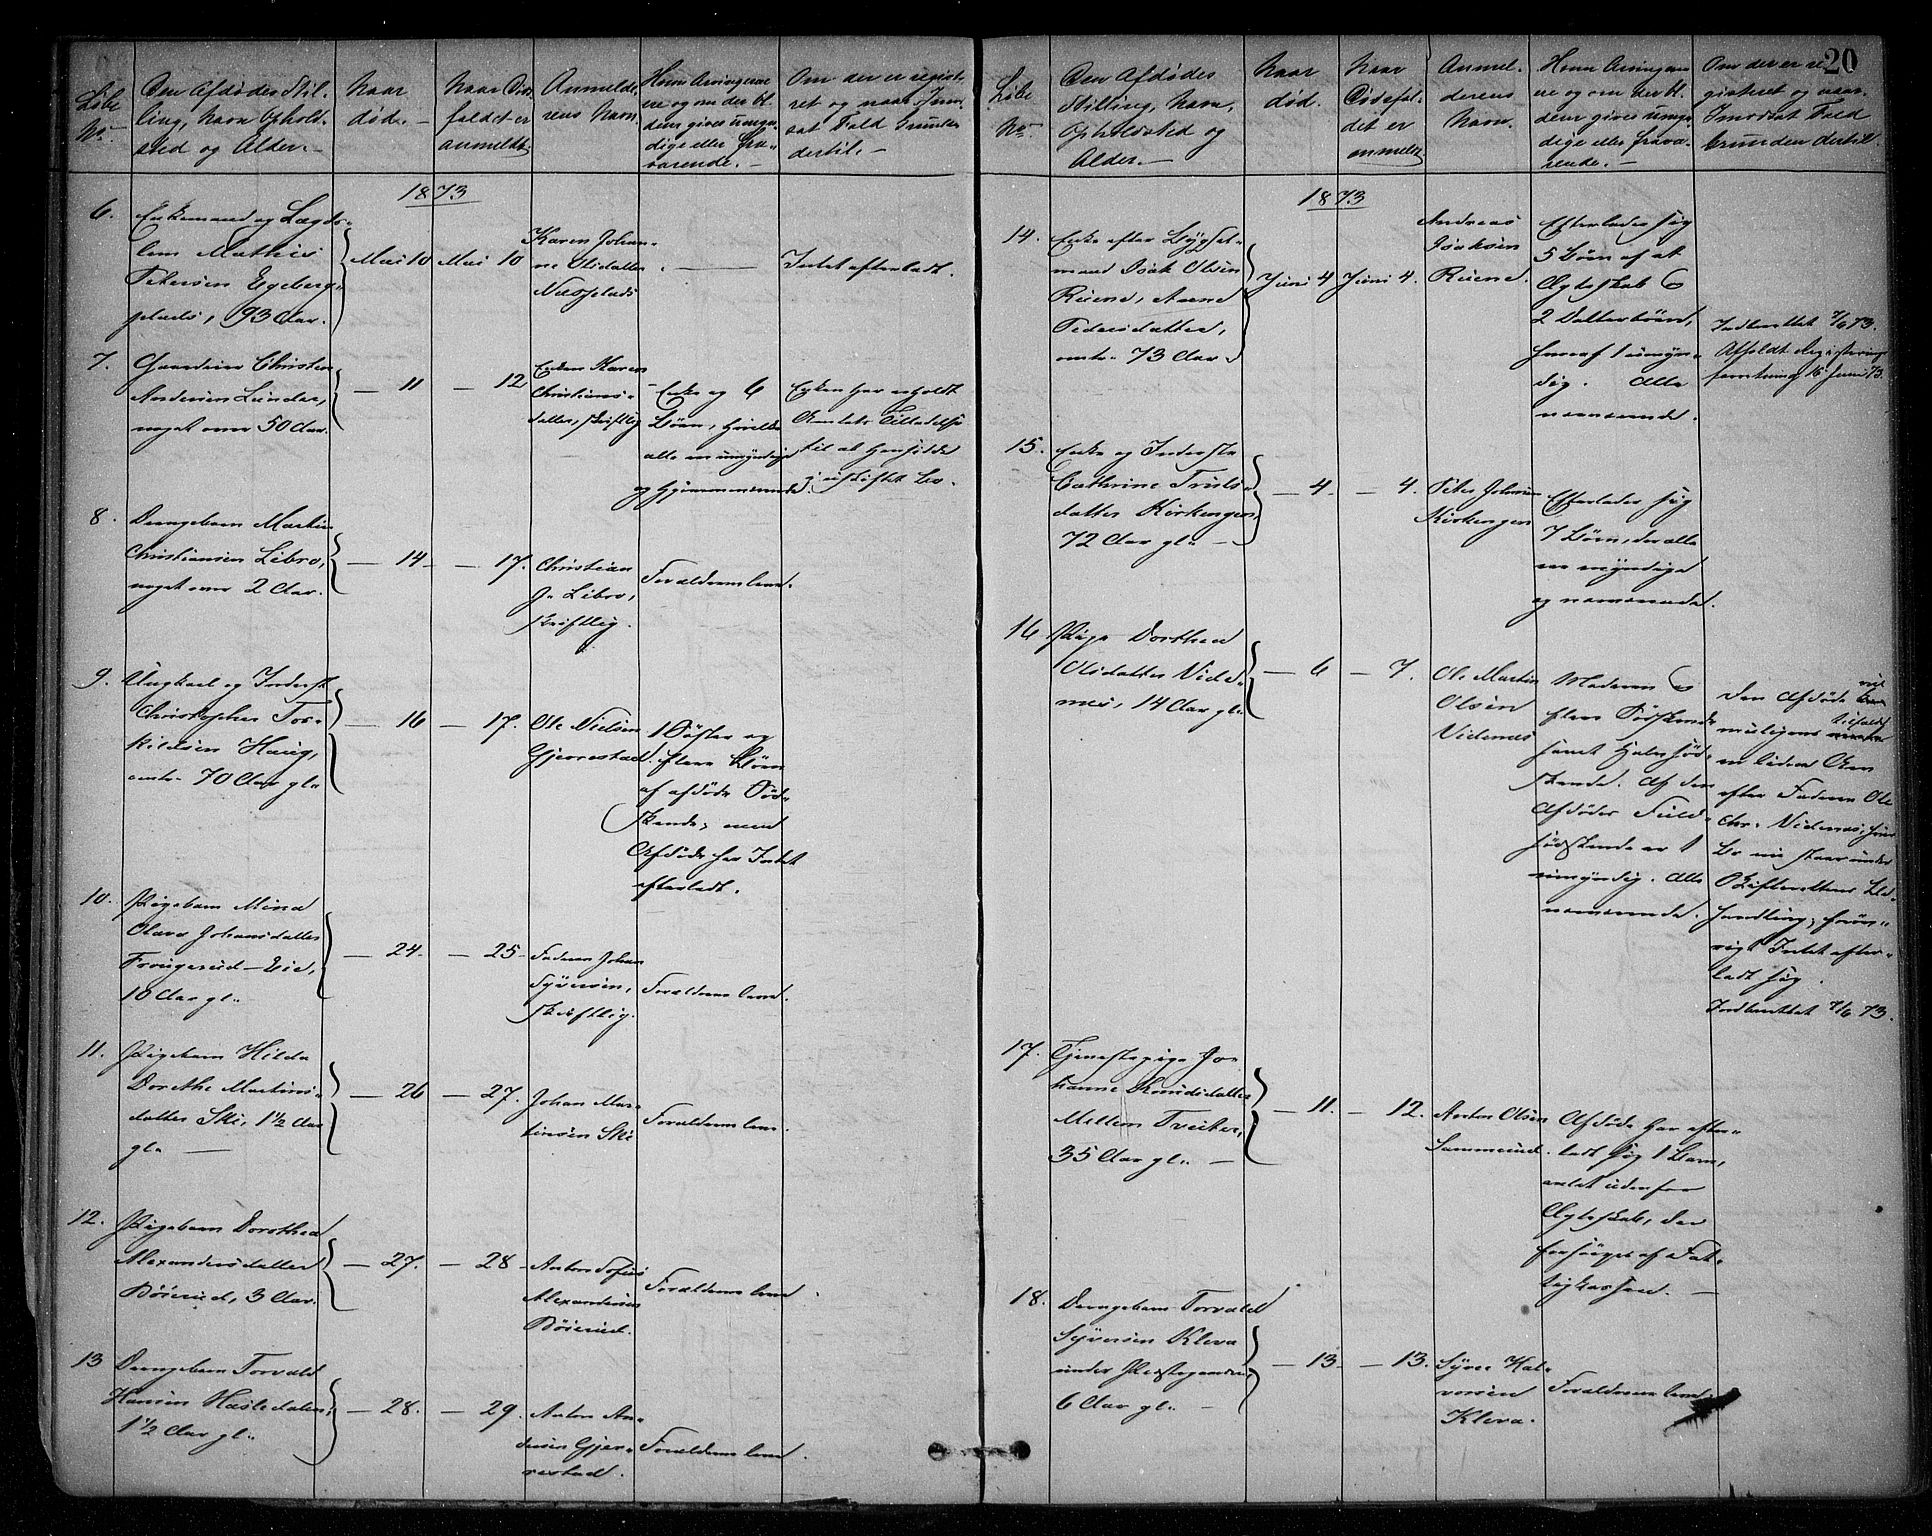 20
Løbe
No
Den Afdødes Stil-
ling, Navn Ophold-
sted og Alder.
Naar
død.
Naar Døds
faldet er
anmeldt
Anmelde-
rens Navn.
Hvem Arvingerne
ere og om der bl.
dem gives umyn-
dige eller fra-
værende.
Om der er regist-
ret og naar I mod-
sat Fald Grunden
dertil.
1873
6.
Enkemand og Lægds-
lem Mathis
Petersen Egeberg-
plads, 93 Aar.
Mai 10
Mai 10
Karen Johan-
ne Olsdatter
Næsplads
Intet efterladt.
7.
Gaardeier Christen
Andersen Lundar,
noget over 50 Aar.
11
12
Enken Karen
Christians-
datter, skriftlig
Enke og 6
Børn, hvilke
alle ere umyndige
og hjemmeværende.
Enken har erholdt
Amtets Tilladelse
til at hensidde
i uskiftet Bo.
8.
Drengebarn Martin
Christiansen Libro,
noget over 2 Aar.
14
17.
Christian
J. Libro,
skriftlig.
Forældrene leve.
9.
Ungkarl og Inderst
Christopher Tor-
kildsen Haug,
omtr. 70 Aar gl.
16
17.
Ole Nielsen
Gjerrestad.
1 Søster og
flere Børn
af afdøde Sød-
skende, men
Afdøde har Intet
efterladt.
10.
Pigebarn Mina
Olava Johansdatter
Frougerud-Eie,
10 Aar gl.
24.
25.
Faderen Johan
Syversen,
skriftlig.
Forældrene leve.
11.
Pigebarn Hilda
Dorethe Martins-
datter Ski, 1½ Aar
gl.
26
27.
Johan Mar-
tinsen Ski
Forældrene leve.
12.
Pigebarn Dorothea
Alexandersdatter
Bøierud, 3 Aar.
27.
28
Anton Sofus
Alexandersen
Bøierud.
Forældrene leve.
13
Drengebarn Torvald
Hansen Hasledalen,
1½ Aar gl.
28.
29.
Anton An-
dersen Gjer-
restad.
Forældrene leve.
Løbe
No
Den Afdødes
Stilling, Navn,
Opholdsted og
Alder.
Naar
død.
Naar
Dødsfal-
det er
anmeldt
Anmel-
derens
Navn.
Hvem Arvingerne
ere og om der bl.
dem gives umyn-
dige eller fravæ-
rende.
Om der er re-
gistreret og naar
I modsat Fald
Grunden dertil.
1873
14.
Enke efter Bygsel-
mand Isak Olsen
Ruene, Anne
Pedersdatter,
omtr. 73 Aar.
Juni 4
Juni 4.
Andreas
Isaksen
Ruene.
Efterlader sig
5 Børn af et
Ægteskab &
2 Datterbørn,
hvoraf 1 umyn-
dig. Alle
nærværende.
Indberettet 7/6 73.
Afholdt Registrerings
forretning 16 Juni 73.
15.
Enke og Inderste
Cathrine Truls-
datter Kirkengen,
72 Aar gl.
4.
4.
Peter Johnsen
Kirkengen
Efterlader sig
7 Børn, der alle
ere myndige
og nærværende.
16
Pige Dorthea
Olsdatter Vide-
nes, 14 Aar gl.
6
7.
Ole Martin
Olsen
Videnes
Moderen &
flere Sødskende
samt Halvsød-
skende. Af den
Afdødes Fuld-
sødskende er 1
umyndig. Alle
nærværende.
Den Afdøde
vil
muligens
tilfaldt
en liden Arv
efter Faderen Ole
Chr. Videnes, hvis
Bo nu staar under
Skifterettens Be-
handling; forøv-
rigt Intet efter-
ladt sig.
Indberettet 7/6 73.
17.
Tjenestepige Jo-
hanne Knudsdatter
Mellem Tveiter,
35 Aar gl.
11.
12.
Anton Olsen
Sammerud.
Afdøde har efter-
ladt sig 1 Barn,
avlet udenfor
Ægteskab, der
forsørges af Fat-
tigkassen.
18.
Drengebarn Torvald
Syversen Kleva
under Præstegaarden,
6 Aar gl.
13.
13.
Syver Hal-
vorsen
Kleva.
Forældrene leve.